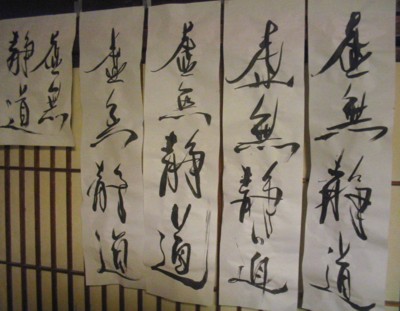 虚無静道
虚無静道
虚無静道
虚無静道
虚無
静道